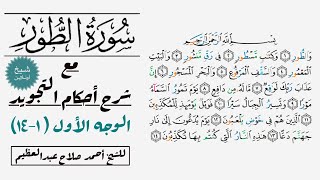 سُورَةُ الطُّورِ
مع
شرح أحكام التجويد
الوجه الأول (١-١٤)
للشيخ أحمد صلاح عبدالعظيم
بِسْمِ اللَّهِ الرَّحْمَٰنِ الرَّحِيمِ
وَالطُّورِ ١ وَكِتَابٍ مَّسْطُورٍ ٢ فِي رَقٍّ مَّنشُورٍ ٣ وَالْبَيْتِ
الْمَعْمُورِ ٤ وَالسَّقْفِ الْمَرْفُوعِ ٥ وَالْبَحْرِ الْمَسْجُورِ ٦ إِنَّ
عَذَابَ رَبِّكَ لَوَاقِعٌ ٧ مَّا لَهُ مِن دَافِعٍ ٨ يَوْمَ تَمُورُ السَّمَاءُ
مَوْرًا ٩ وَتَسِيرُ الْجِبَالُ سَيْرًا ١٠ فَوَيْلٌ يَوْمَئِذٍ لِّلْمُكَذِّبِينَ
١١ الَّذِينَ هُمْ فِي خَوْضٍ يَلْعَبُونَ ١٢ يَوْمَ يُدَعُّونَ إِلَىٰ نَارِ
جَهَنَّمَ دَعًّا ١٣ هَٰذِهِ النَّارُ الَّتِي كُنتُم بِهَا تُكَذِّبُونَ ١٤